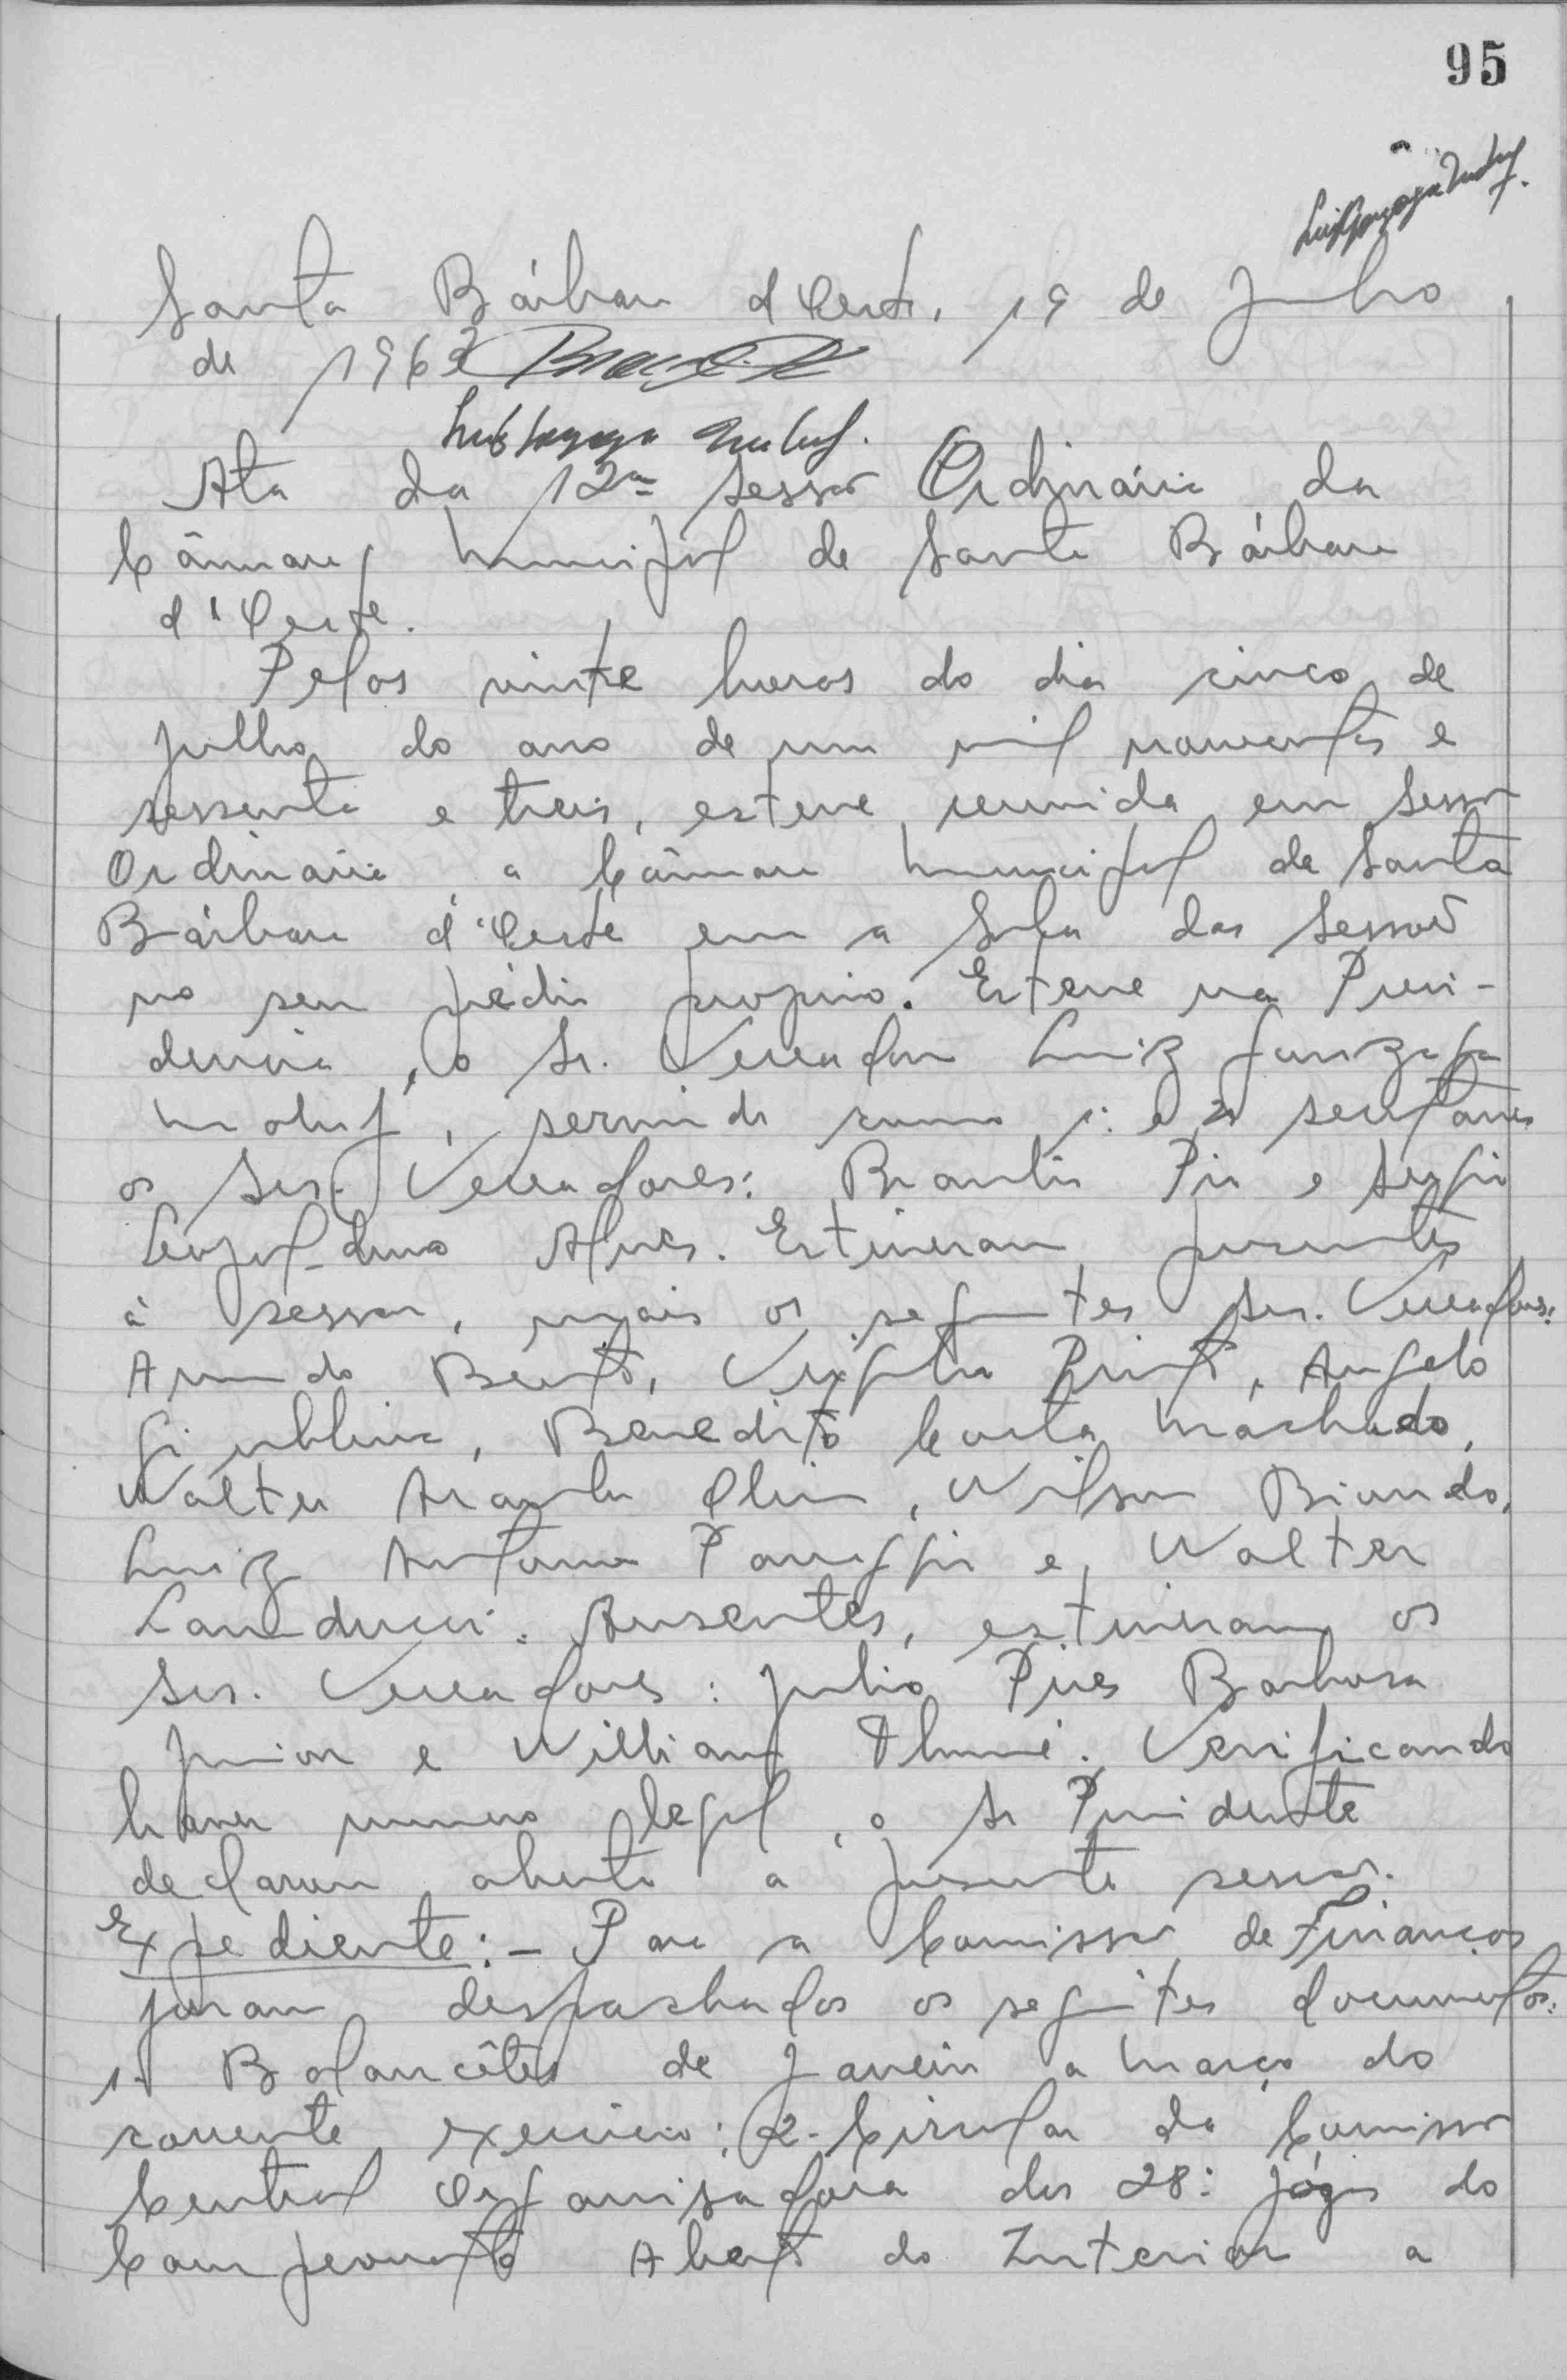 95
Santa Bárbara d'Oeste, 19 de Julho
de 1963
Ata da 12ª Sessão Ordinária da
Câmara Municipal de Santa Bárbara
d'Oeste.
Pelas vinte horas do dia cinco de
julho do ano de um mil novecentos e
sessenta e treis, esteve reunida em Sessão
Ordinária a Câmara Municipal de Santa
Bárbara d'Oeste em a Sala das Sessões
no seu prédio proprio. Esteve na Presi-
dencia, o Sr. Vereador Luiz Gonzaga
Maluf, servindo como 1º e 2º secretários
os Srs. Vereadores: Braulio Pio e Sergio
Leopoldino Alves. Estiveram presentes
à sessão, mais os seguintes Srs. Vereadores:
Arnaldo Bento, Vergilio Pinto, Angelo
Giubbina, Benedito Costa Machado,
Walter Araujo Oliveira, Wilson Biondo,
Luiz Antonio Panaggio e Walter
Landucci. Ausentes, estiveram os
Srs. Vereadores: Julio Pires Barbosa
Junior e William Thomé. Verificando
haver numero legal, o Sr Presidente
declarou aberta a presente sessão.
Expediente: - Para a Comissão de Finanças
foram despachados os seguintes documentos:
1- Balancêtes de Janeiro a Março do
corrente exercicio; 2- Circular da Comissão
Central Organisadora dos 28º Jógos do
Campeonato Aberto do Interior a